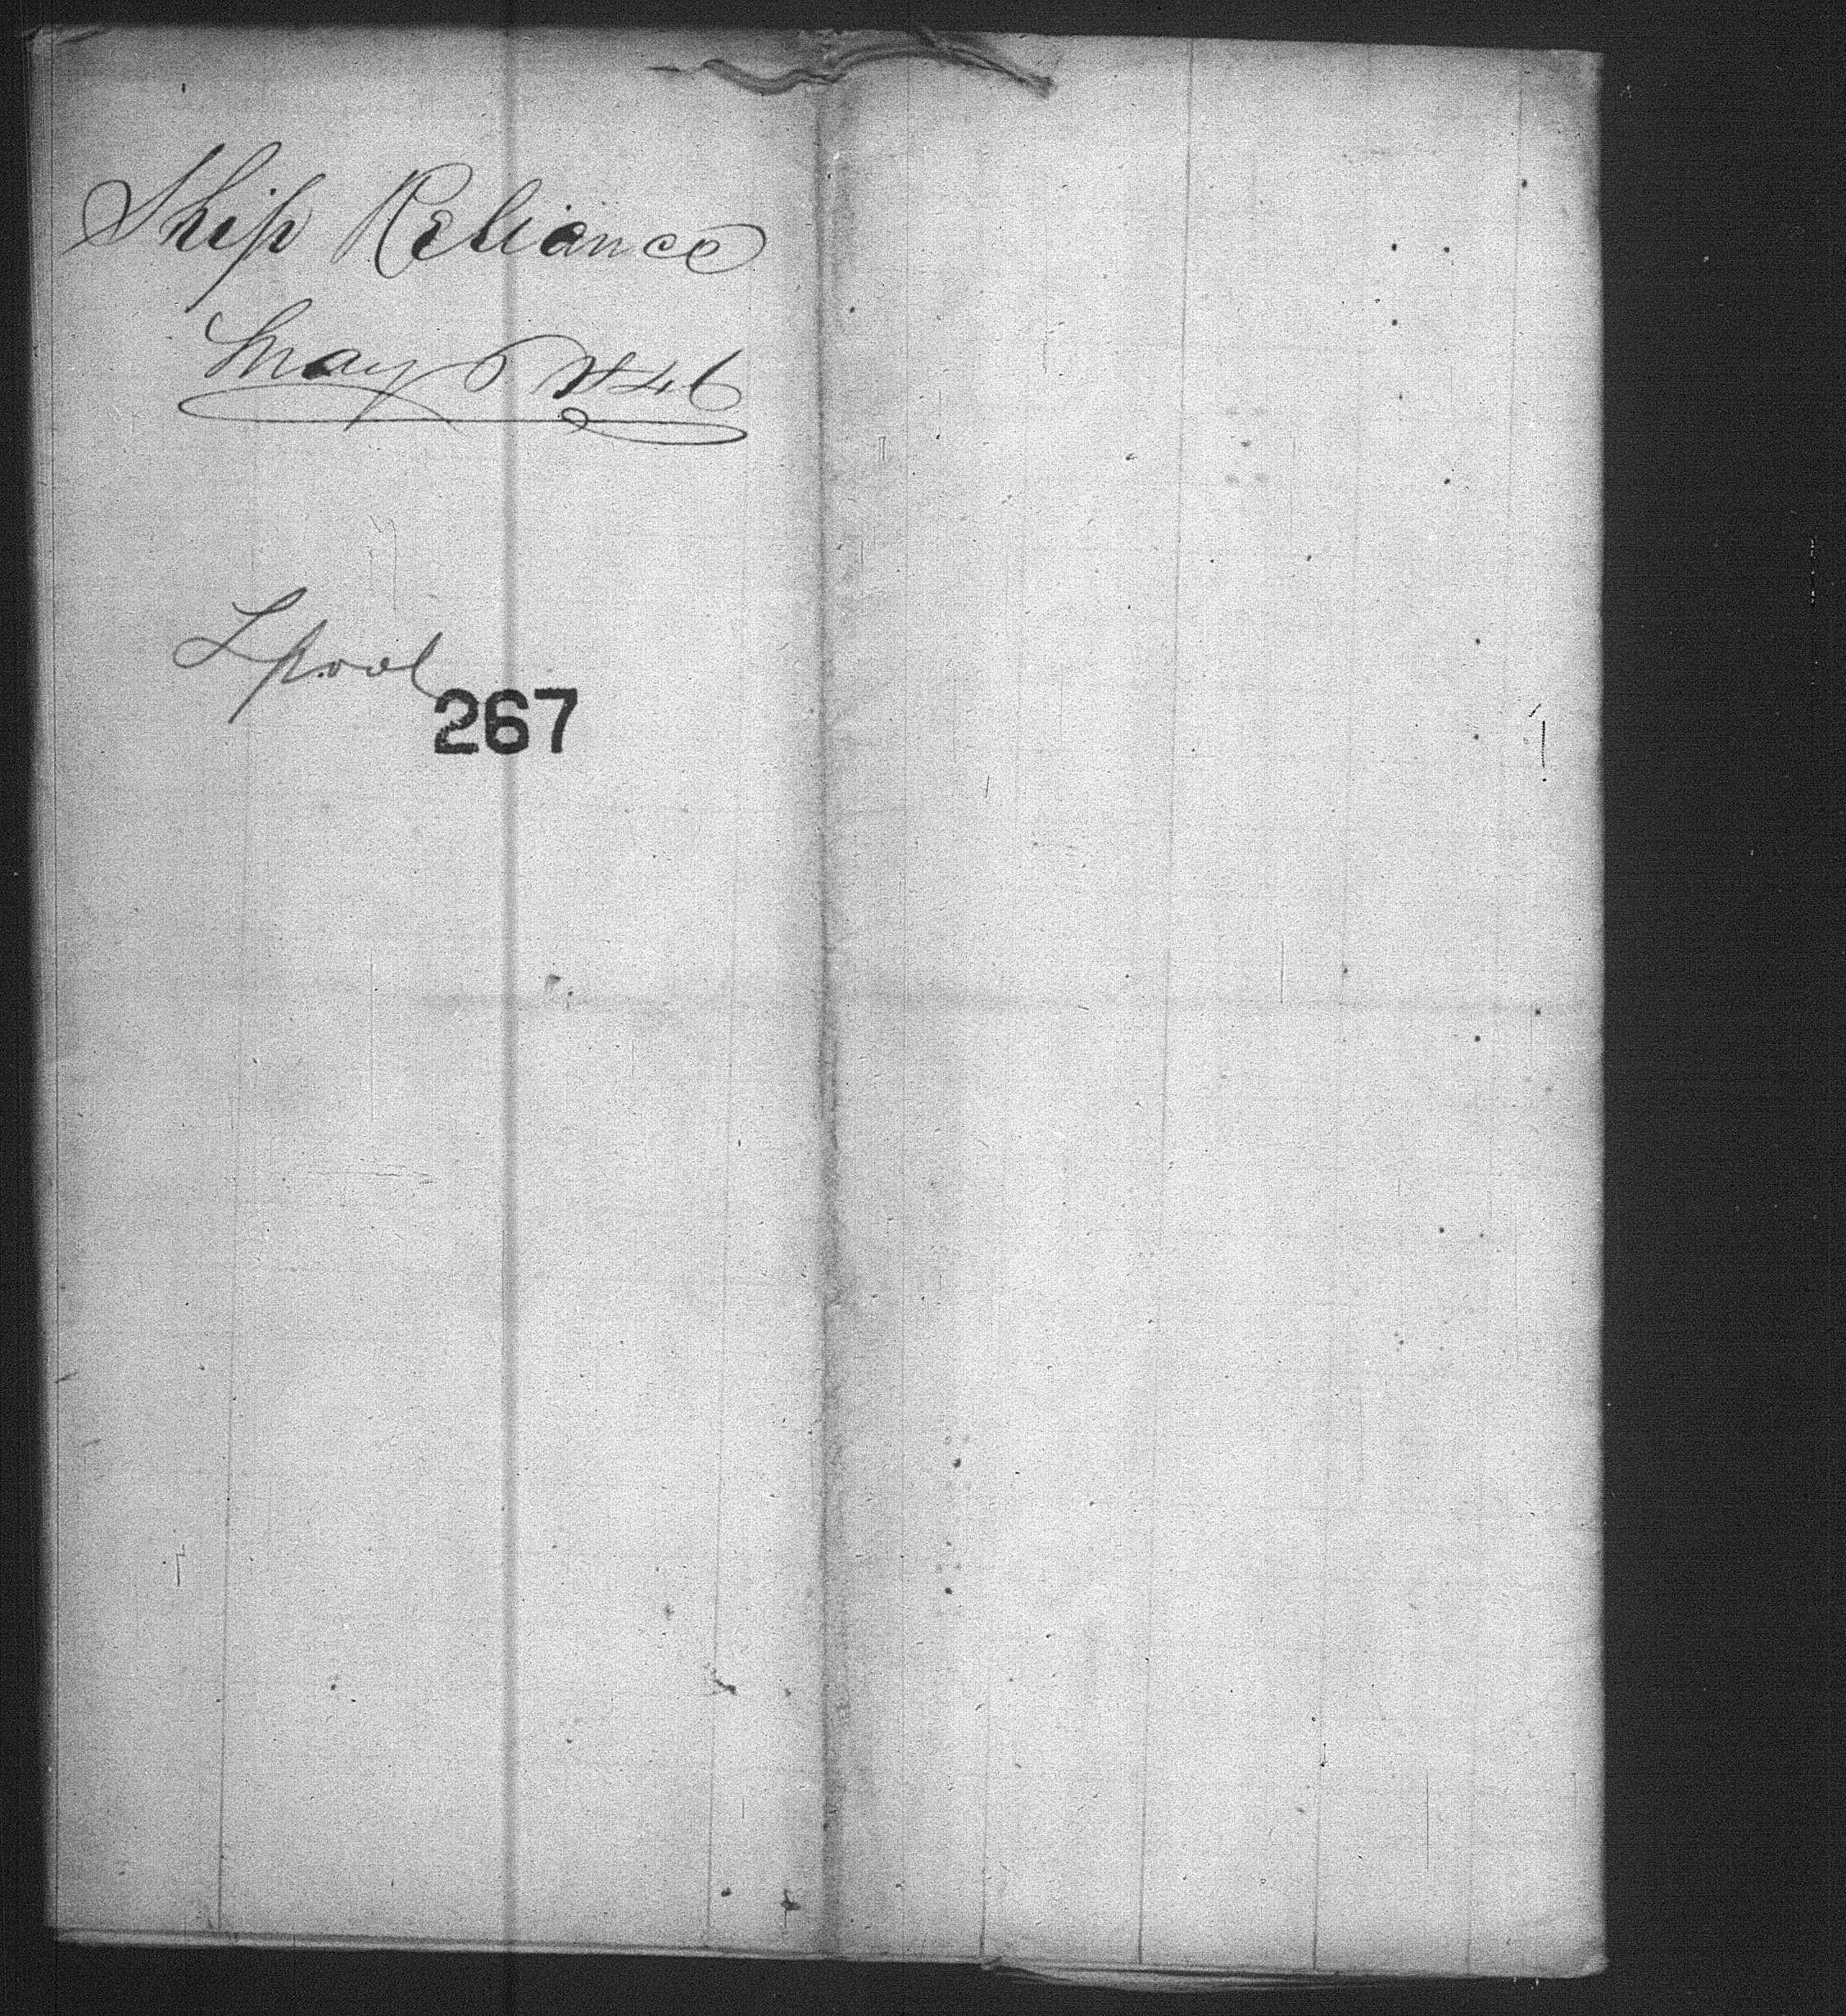 Ship Reliance
May 6 1846
Lpool
267